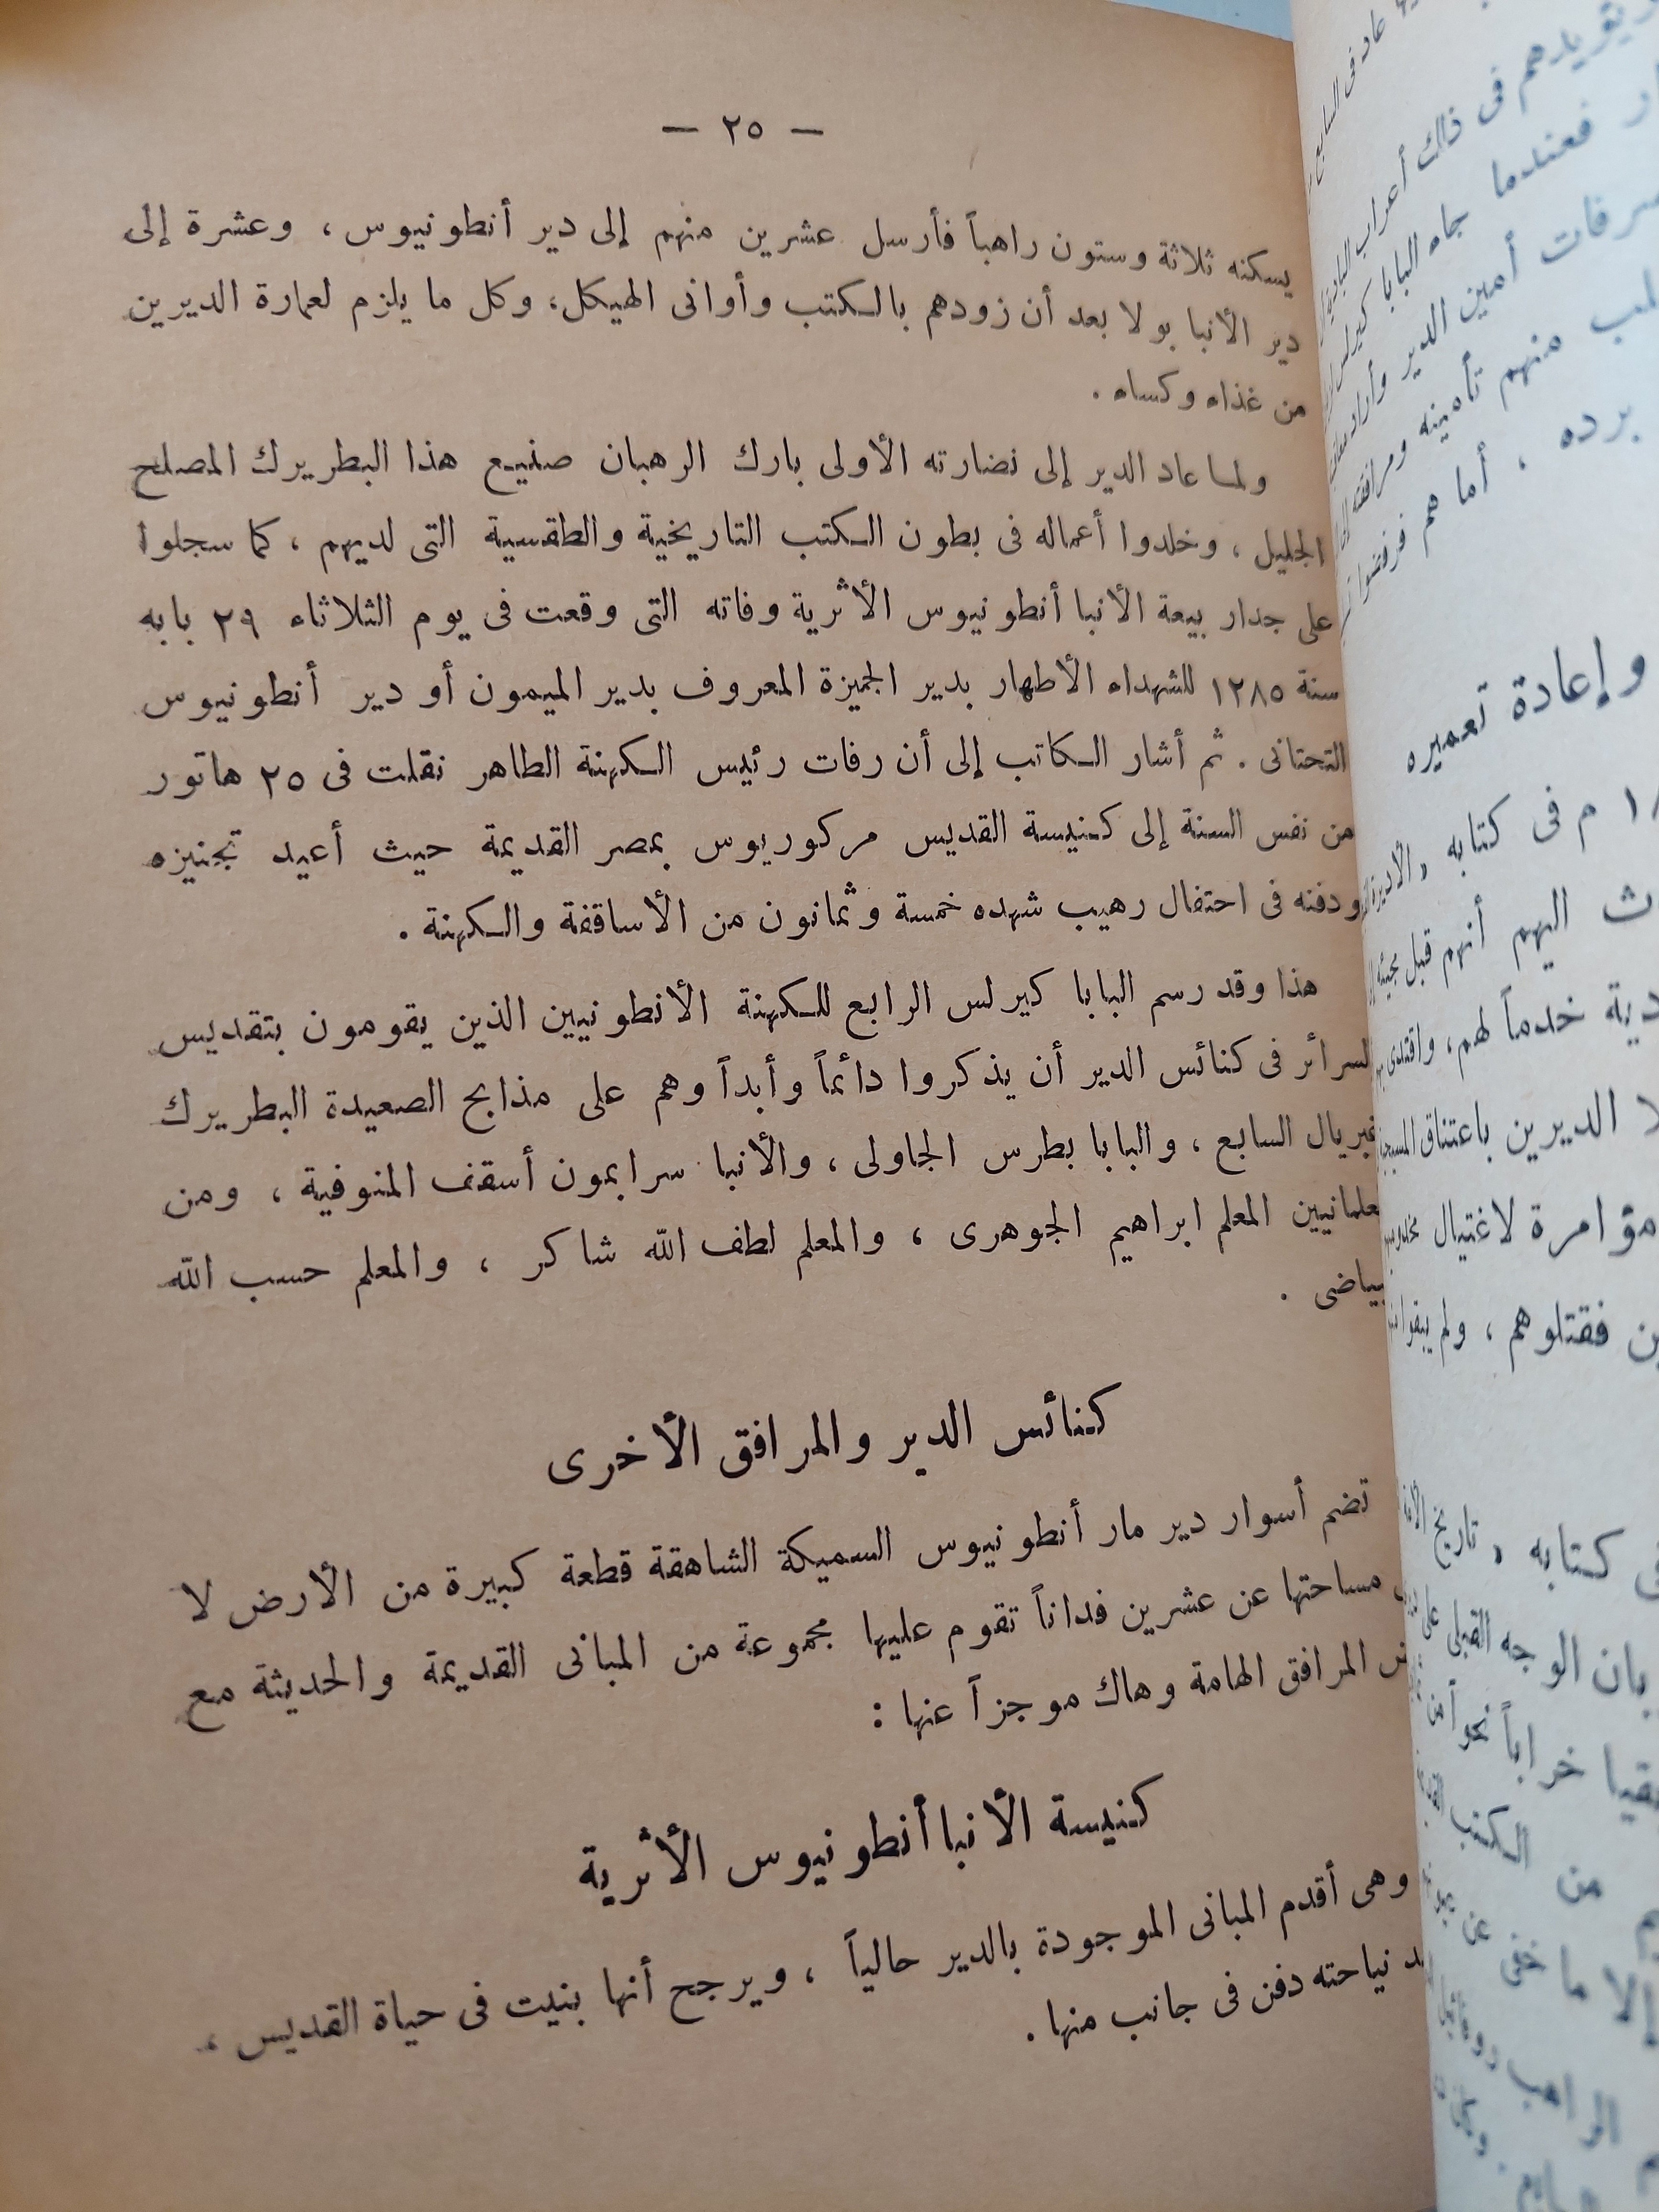 — ٢٥ —
يسكنه ثلاثة وستون راهباً فأرسل عشرين منهم إلى دير أنطونيوس ، وعشرة إلى
دير الأنبا بولا بعد أن زودهم بالكتب وأوانى الهيكل، وكل ما يلزم لعمارة الديرين
من غذاء وكساء .
ولما عاد الدير إلى نضارته الأولى بارك الرهبان صنيع هذا البطريرك المصلح
الجليل ، وخلدوا أعماله فى بطون الكتب التاريخية والطقسية التى لديهم ، كما سجلوا
على جدار بيعة الأنبا أنطونيوس الأثرية وفاته التى وقعت فى يوم الثلاثاء ٢٩ بابه
سنة ١٢٨٥ للشهداء الأطهار بدير الجميزة المعروف بدير الميمون أو دير أنطونيوس
التحتانى . ثم أشار الكاتب إلى أن رفات رئيس الكهنة الطاهر نقلت فى ٢٥ هاتور
من نفس السنة إلى كنيسة القديس مركوريوس بمصر القديمة حيث أعيد تجنيزه
ودفنه فى احتفال رهيب شهده خمسة وثمانون من الأساقفة والكهنة .
هذا وقد رسم البابا كيرلس الرابع للكهنة الأنطونيين الذين يقومون بتقديس
السرائر فى كنائس الدير أن يذكروا دائماً وأبداً وهم على مذابح الصعيدة البطريرك
غبريال السابع ، والبابا بطرس الجاولى ، والأنبا سرابمون أسقف المنوفية ، ومن
علمانيين المعلم ابراهيم الجوهرى ، والمعلم لطف الله شاكر ، والمعلم حسب الله
بياضى .
كنائس الدير والمرافق الأخرى
تضم أسوار دير مار أنطونيوس السميكة الشاهقة قطعة كبيرة من الأرض لا
مساحتها عن عشرين فداناً تقوم عليها مجموعة من المبانى القديمة والحديثة مع
المرافق الهامة وهاك موجزاً عنها :
كنيسة الأنبا أنطونيوس الأثرية
وهى أقدم المبانى الموجودة بالدير حالياً ، ويرجح أنها بنيت فى حياة القديس ،
نياحته دفن فى جانب منها .
فى ذاك أعراب البادية
فعندما جاء البابا كيرلس
أمين الدير وأراد
منهم تأمينه ومرافقته
برده ، أما هم فرفضوا
وإعادة تعميره
م فى كتابه
اليهم أنهم قبل
خدماً لهم، واقتدى
الديرين باعتناق
مؤامرة لاغتيال
فقتلوهم ، ولم يبقوا
كتابه « تاريخ
الوجه القبلى على
خراباً نحواً من
من الكتب
إلا ما خفى عن
الراهب